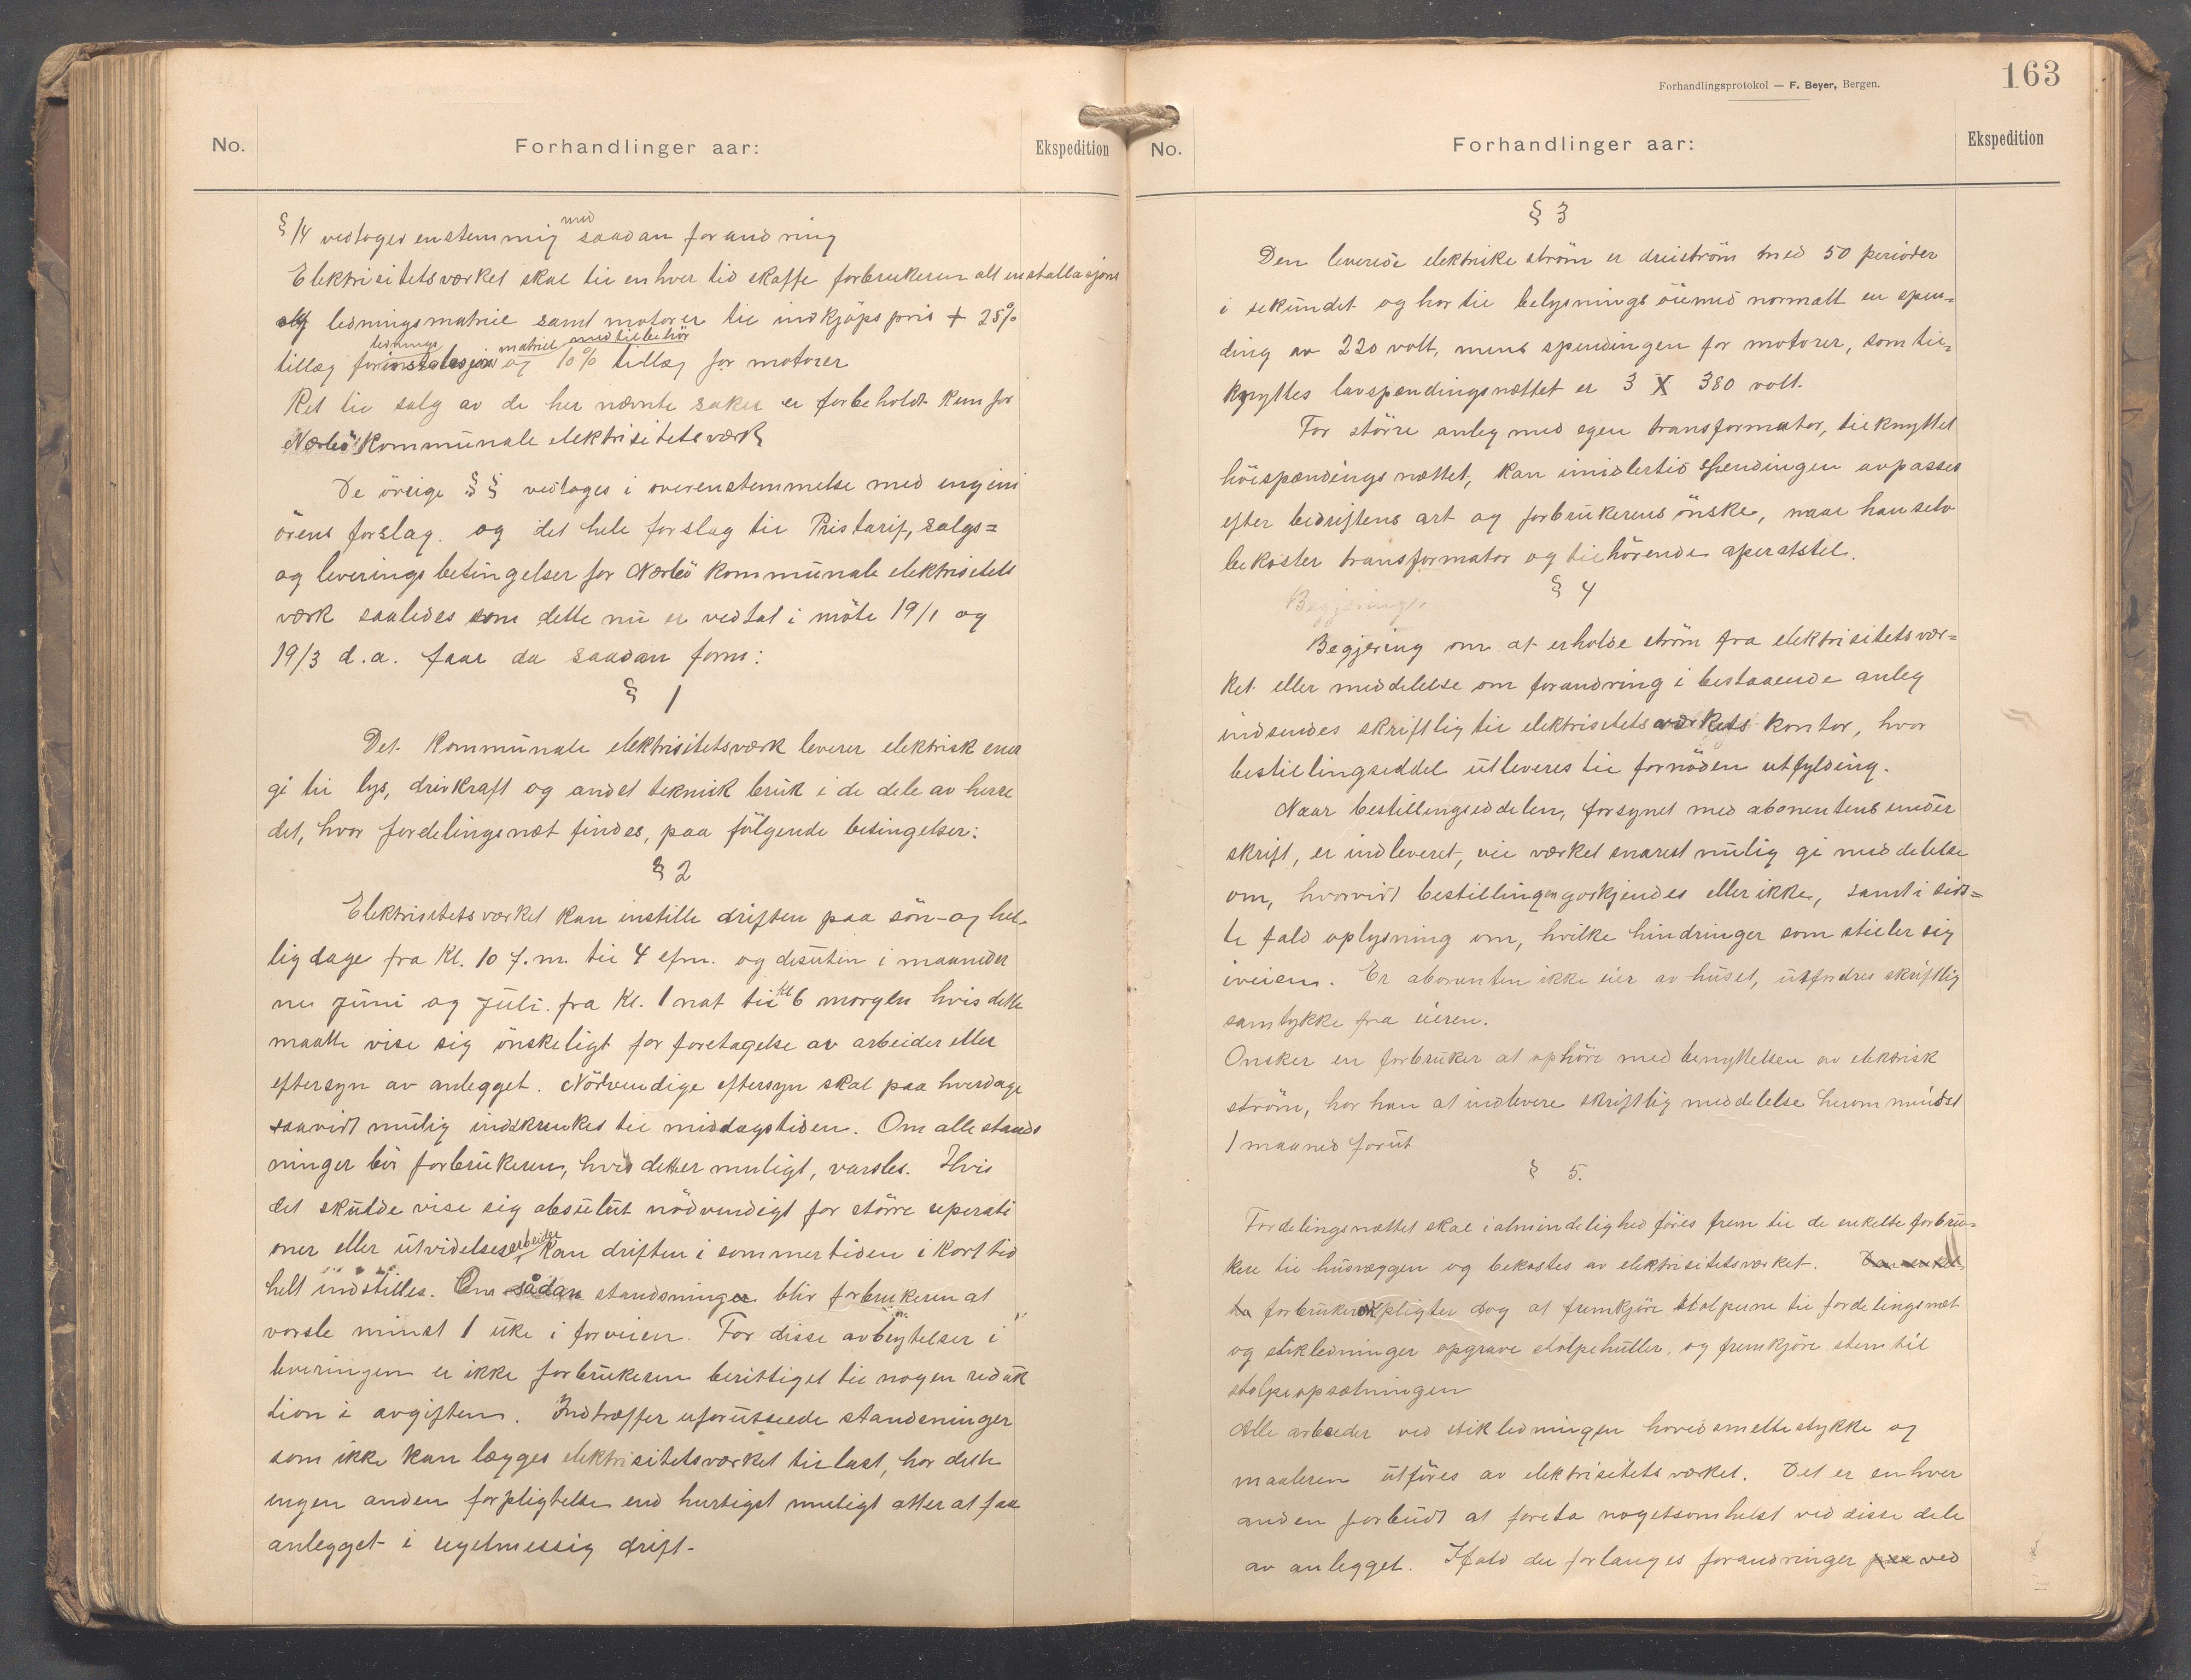 No.
Forhandlinger aar:
Ekspedition
§ 14 vedtoges enstemmig med saadan forandring
Elektrisitetsværket skal til enhver tid skaffe forbrukeren alt installasjons
og ledningsmatriel samt motorer til indkjøps pris + 25%
tillæg for lednings matriel med tilbehör og 10% tillæg for motorer
Ret til salg av de her nævnte saker er forbeholdt kun for
Nærbö kommunale elektrisitetsværk
De övrige §§ vedtages i overenstemmelse med ingeni
örens forslag. og det hele forslag til Pristarif, salgs=
og leverings betingelser for Nærbö kommunale elektrisitets
værk saaledes som dette nu er vedtat i möte 19/1 og
19/3 d.a. faar da saadan form:
§ 1
Det kommunale elektrisitetsværk leverer elektrisk ener
gi til lys, drivkraft og andet teknisk bruk i de dele av herre
det, hvor fordelingsnæt findes, paa fölgende betingelser:
§ 2
Elektrisitetsværket kan instille driften paa sön- og hel-
ligdage fra Kl. 10 f.m. til 4 efm. og desuten i maaneder
ne juni og juli. fra Kl. 1 nat til kl 6 morgen hvis dette
maatte vise sig önskeligt for foretagelse av arbeider eller
eftersyn av anlegget. Nödvendige eftersyn skal paa hverdage
saavidt mulig indskrenkes til middagstiden. Om alle stands
ninger bör forbrukeren, hvis det er muligt, varsles. Hvis
det skulde vise sig absulut nödvendigt for större reperati
oner eller utvidelsesarbeider kan driften i sommertiden i kort tid
helt indstilles. Om sådan standsninger blir forbrukeren at
varsle minst 1 uke i forveien. For disse avbrytelser i
leveringen er ikke forbrukeren berittiget til nogen reduk
tion i avgiften. Indtræffer uforutseede standsninger
som ikke kan lægges elektrisitetsværket til last, har dette
ingen anden forpligtelse end hurtigst muligt atter at faa
anlegget i regelmessig drift-
Forhandlingsprotokol — F. Beyer, Bergen.
163
No.
Forhandlinger aar:
Ekspedition
§ 3
Den leverede elektriske ström er dreiström med 50 perioder
i sekundet og har til belysnings öiemed normalt en spen=
ding av 220 volt, mens spendingen for motorer, som til=
knyttes lavspendingsnættet er 3 X 380 volt.
For större anleg med egen transformator, tilknyttet
höispændings nættet, kan imidlertid spendingen avpasses
efter bedriftens art og forbrukerens önske, naar han selv
bekoster transformator og tilhörende aperatstel.
§ 4
Begjering om at erholde ström fra elektrisitetsvær=
ket eller meddelelse om forandring i bestaaende anleg
indsendes skriftlig til elektrisitetsværkets kontor, hvor
bestillingseddel utleveres til fornöden utfylding.
Naar bestillingseddelen, forsynet med abonentens under
skrift, er indleveret, vil værket snarest mulig gi meddelelse
om, hvorvidt bestillingen godkjendes eller ikke, samt i sids=
te fald oplysning om, hvilke hindringer som stiller sig
iveien. Er abonenten ikke eier av huset, utfordres skriftlig
samtykke fra eieren.
Onsker en forbruker at ophöre med benyttelsen av elektrisk
ström, har han at indlevere skriftlig meddelelse herom mindst
1 maaned forut
§ 5.
Fordelingsnættet skal i almindelighed föres frem til de enkelte forbru=
kere til husvæggen og bekostes av elektrisitetsverket. Den enkel
te forbruker pligter dog at fremkjöre stolperne til fordelingsnæt
og stikledninger opgrave stolpehuller, og fremkjöre sten til
stolpeopsætningen
Alle arbeider ved stikledningen hovedsmeltestykke og
maaleren utföres av elektrisitets værket. Det er enhver
anden forbudt at foreta nogetsomhelst ved disse dele
av anlegget. Ifald der forlanges forandringer paa ved